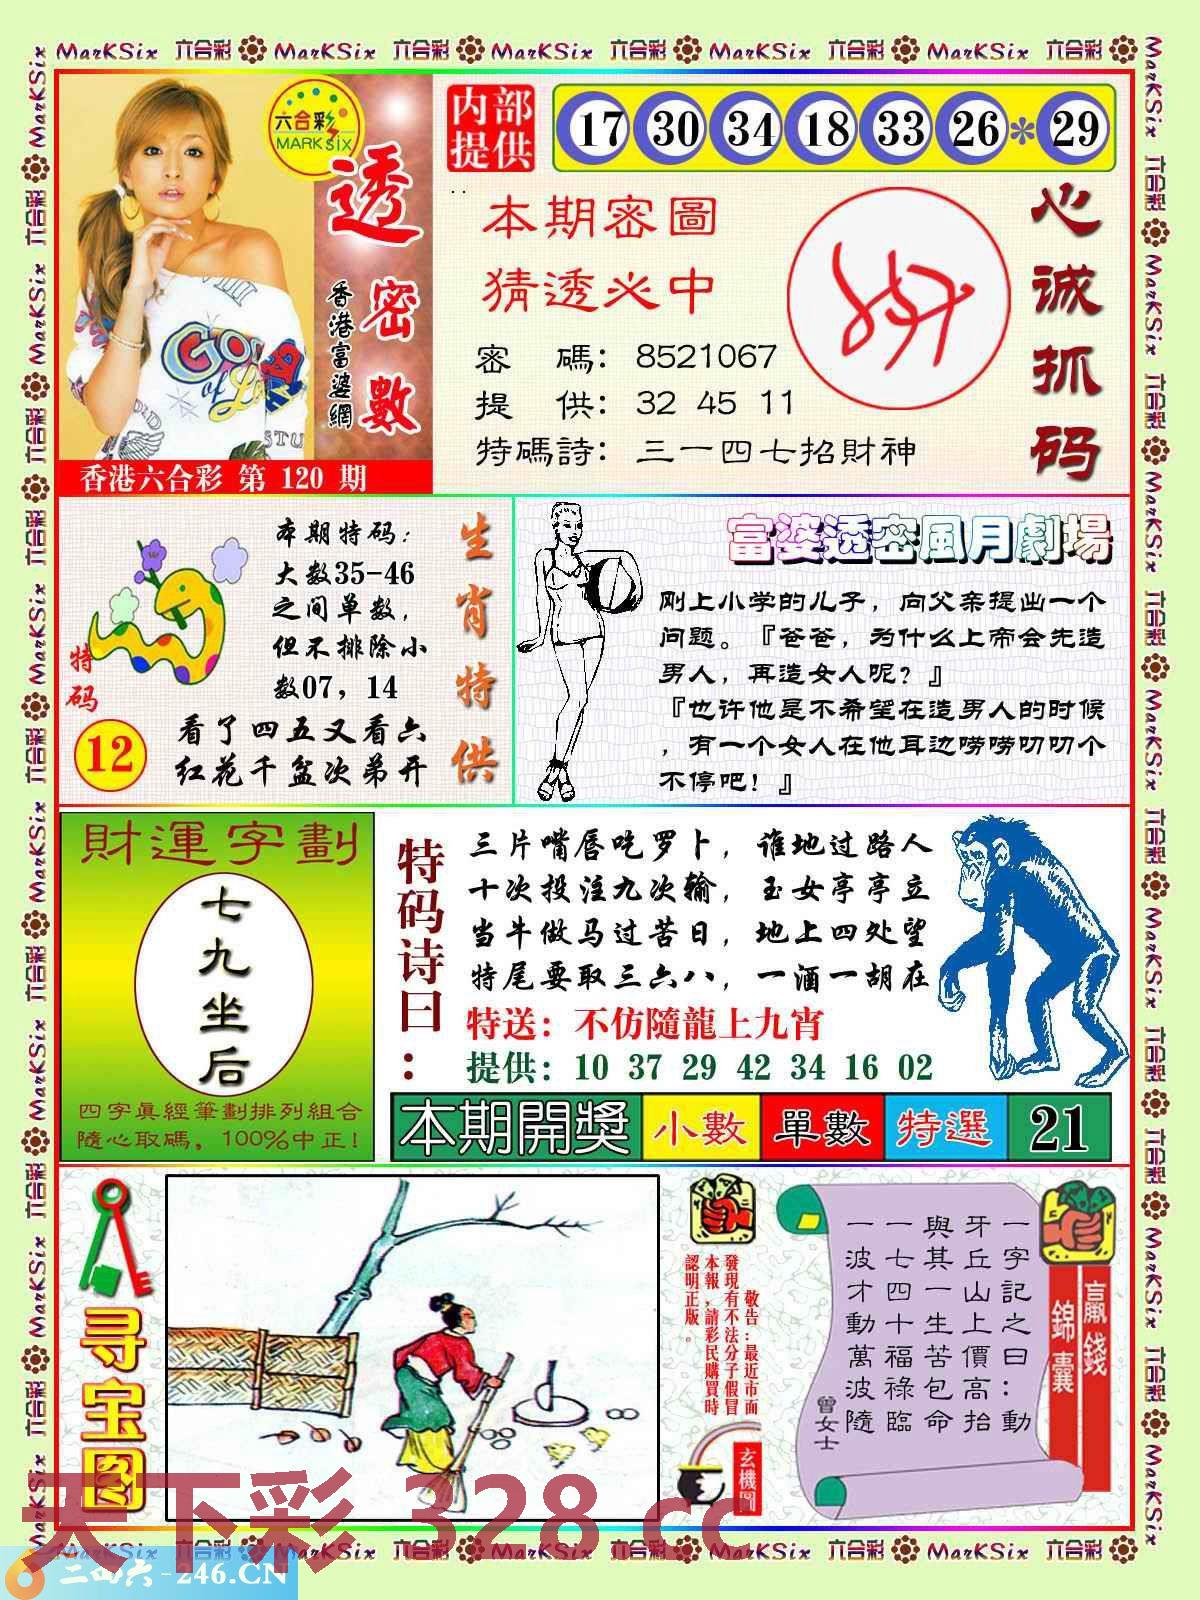 MarKSix 六合彩 MarKSix 六合彩 MarKSix 六合彩 MarKSix 六合彩 MarKSix 六合彩
六合彩
MARK SIX
透密數
香港富婆網
香港六合彩 第 120 期
内部提供
17 30 34 18 33 26 * 29
本期密圖
猜透必中
密 碼: 8521067
提 供: 32 45 11
特碼詩: 三一四七招財神
心诚抓码
本期特码:
大数35-46
之间单数,
但不排除小
数07, 14
特码
12
看了四五又看六
红花千盆次弟开
生肖特供
富婆透密風月劇場
刚上小学的儿子, 向父亲提出一个
问题。『爸爸, 为什么上帝会先造
男人, 再造女人呢? 』
『也许他是不希望在造男人的时候
, 有一个女人在他耳边唠唠叨叨个
不停吧! 』
財運字劃
七九坐后
四字眞經筆劃排列組合
隨心取碼, 100%中正!
特码诗曰:
三片嘴唇吃罗卜, 谁地过路人
十次投注九次输, 玉女亭亭立
当牛做马过苦日, 地上四处望
特尾要取三六八, 一酒一胡在
特送: 不仿隨龍上九宵
提供: 10 37 29 42 34 16 02
本期開獎 小數 單數 特選 21
寻宝图
敬告:最近市面
發現有不法分子假冒
本報,請彩民購買時
認明正版。
玄機圖
一字記之曰:動
牙丘山上價高抬
與其一生苦包命
一七四十福祿臨
一波才動萬波隨
曾女士
贏錢
錦囊
天下彩 328.cc
二四六-246.CN
MarKSix 六合彩 MarKSix 六合彩 MarKSix 六合彩 MarKSix 六合彩 MarKSix 六合彩